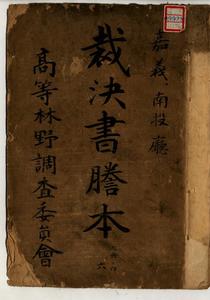 嘉義 南投廳
裁決書謄本
六
高等林野調査委員會